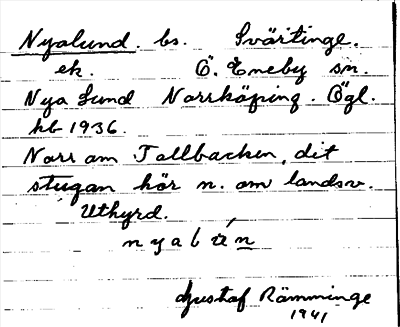 Nyalund. bs. Svärtinge.
ek. Ö. Eneby sn.
Nya Lund Norrköping. Ögl.
kb 1936.
Norr om Tallbacken, dit
stugan hör n. om landsv.
Uthyrd.
nyalún
Gustaf Rämminge
1941